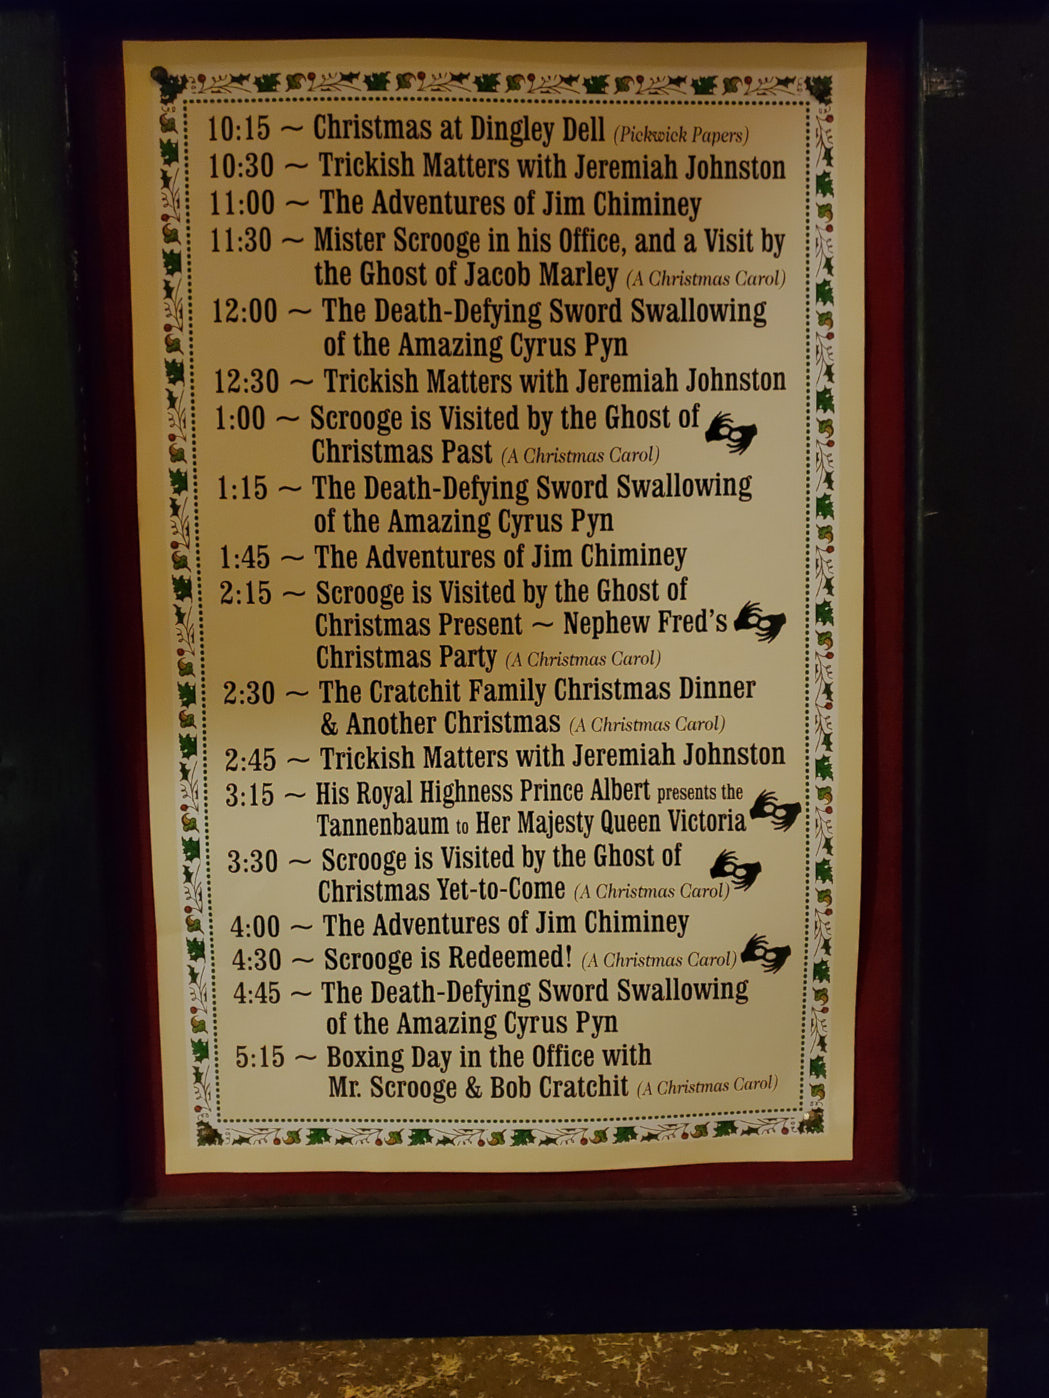 10:15 ~ Christmas at Dingley Dell (Pickwick Papers)
10:30 ~ Trickish Matters with Jeremiah Johnston
11:00 ~ The Adventures of Jim Chiminey
11:30 ~ Mister Scrooge in his Office, and a Visit by
the Ghost of Jacob Marley (A Christmas Carol)
12:00 ~ The Death-Defying Sword Swallowing
of the Amazing Cyrus Pyn
12:30 ~ Trickish Matters with Jeremiah Johnston
1:00 ~ Scrooge is Visited by the Ghost of
Christmas Past (A Christmas Carol)
1:15 ~ The Death-Defying Sword Swallowing
of the Amazing Cyrus Pyn
1:45 ~ The Adventures of Jim Chiminey
2:15 ~ Scrooge is Visited by the Ghost of
Christmas Present ~ Nephew Fred's
Christmas Party (A Christmas Carol)
2:30 ~ The Cratchit Family Christmas Dinner
& Another Christmas (A Christmas Carol)
2:45 ~ Trickish Matters with Jeremiah Johnston
3:15 ~ His Royal Highness Prince Albert presents the
Tannenbaum to Her Majesty Queen Victoria
3:30 ~ Scrooge is Visited by the Ghost of
Christmas Yet-to-Come (A Christmas Carol)
4:00 ~ The Adventures of Jim Chiminey
4:30 ~ Scrooge is Redeemed! (A Christmas Carol)
4:45 ~ The Death-Defying Sword Swallowing
of the Amazing Cyrus Pyn
5:15 ~ Boxing Day in the Office with
Mr. Scrooge & Bob Cratchit (A Christmas Carol)